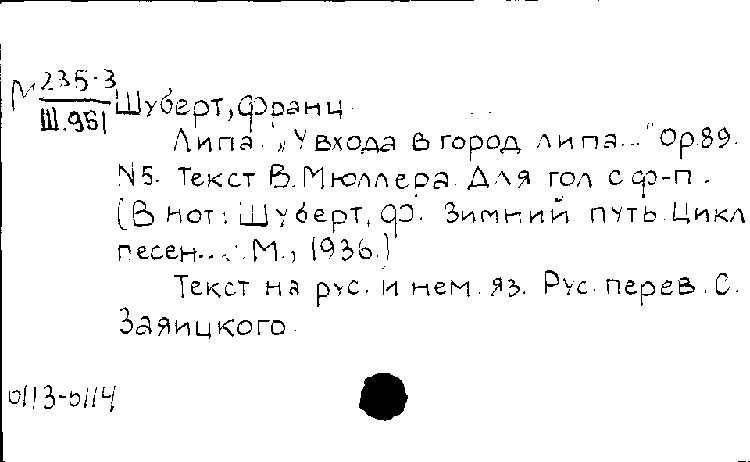 М 235-3
Ш.951
Шуберт, Франц.
Липа. „У входа в город липа..." Op.89.
N5. Текст В. Мюллера. Для гол с ф-п.
(В нот: Шуберт, Ф. Зимний путь. Цикл
песен... М., 1936.)
Текст на рус. и нем. яз. Рус. перев. С.
Заяицкого.
0113-0114